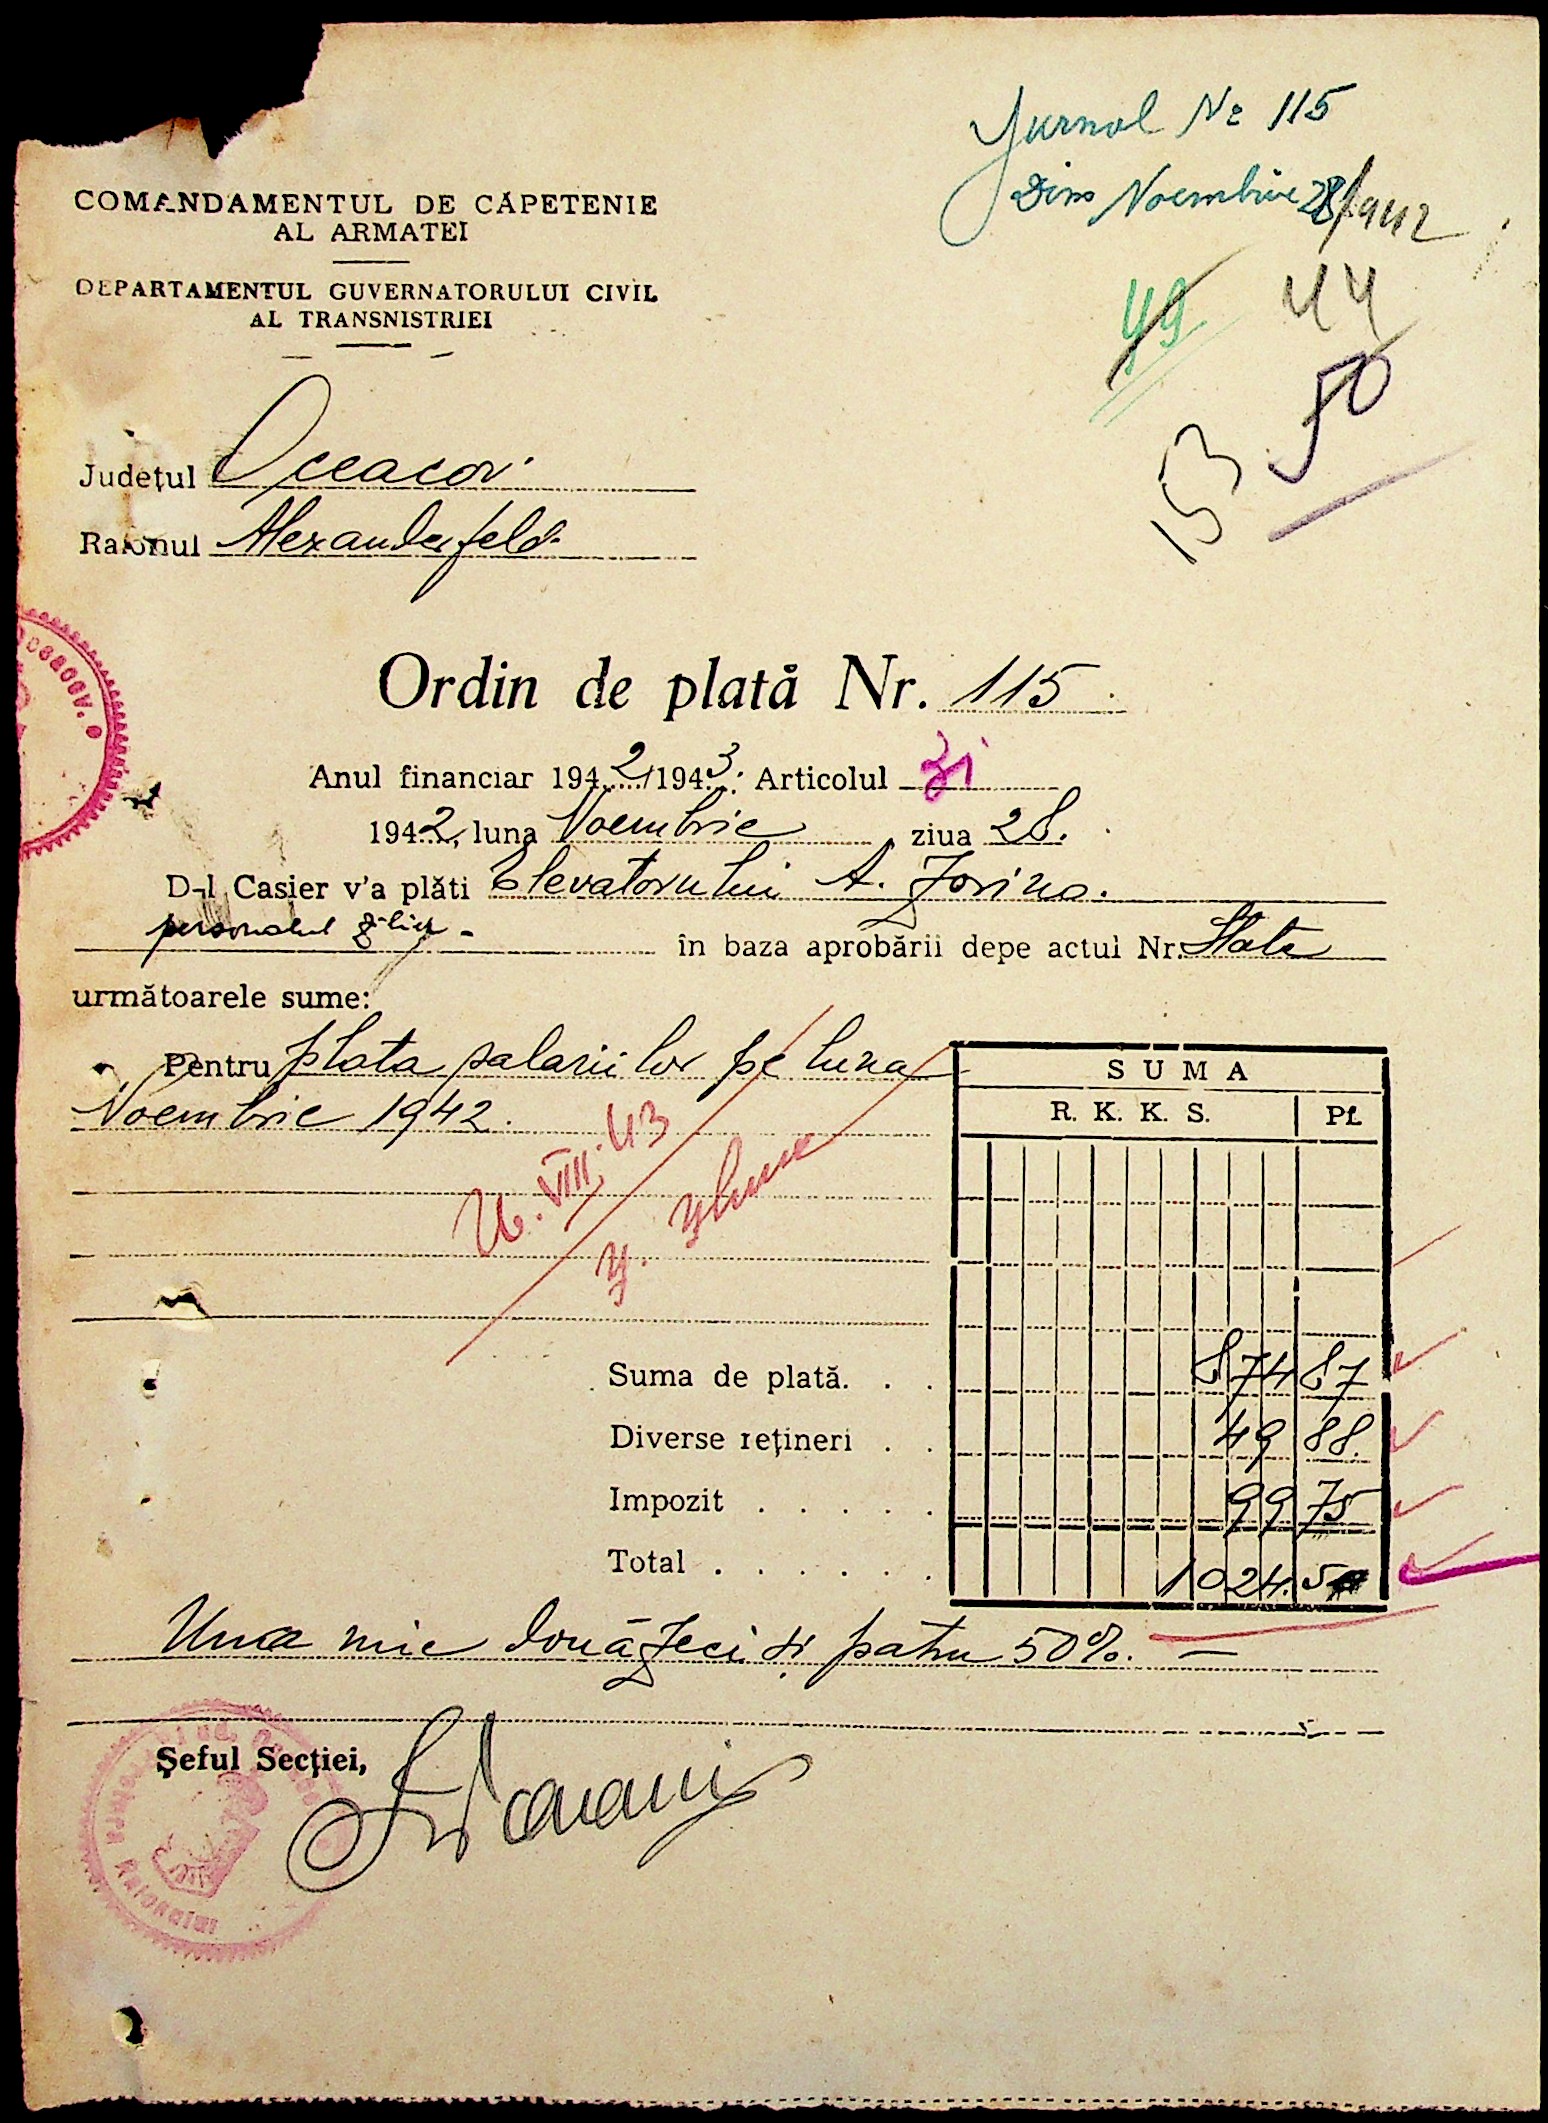 Jurnal No 115
Din Noembrie 28/942
COMANDAMENTUL DE CĂPETENIE
AL ARMATEI
DEPARTAMENTUL GUVERNATORULUI CIVIL
AL TRANSNISTRIEI
49
44
50
153
Județul Oceacov
Raionul Alexanderfeld
Ordin de plată Nr. 115
Anul financiar 1942/1943; Articolul 31
1942, luna Noembrie ziua 28.
D-l Casier v'a plăti Elevatorului A. Zorino.
personalul zilier - în baza aprobării depe actul Nr. State
următoarele sume:
Pentru plata salariilor pe luna
Noembrie 1942.
SUMA
R. K. K. S. Pf.
VIII. 43
Suma de plată. . . 874 87
Diverse rețineri . . 49 88.
Impozit . . . . . 99 75
Total . . . . . . 1024. 50
Una mie douăzeci și patru 50%. —
Șeful Secției,
Raionului